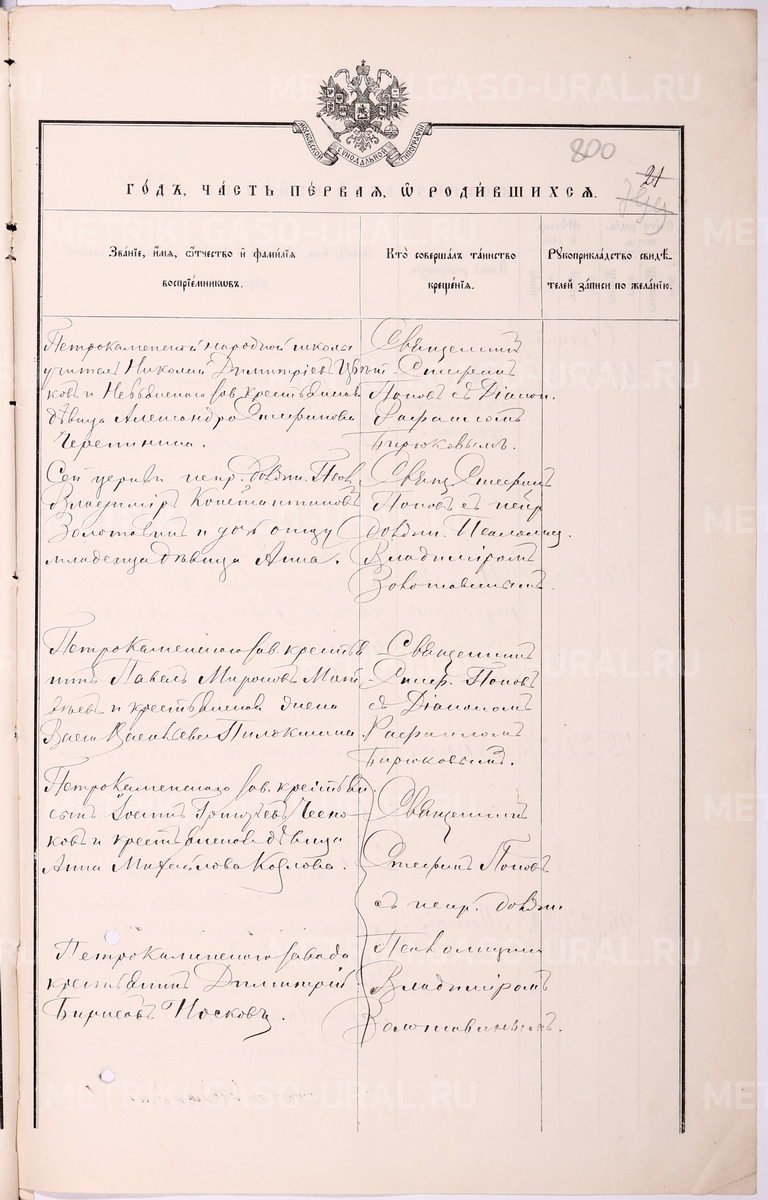 МОСКОВСКОЙ СѴНОДАЛЬНОЙ ТИПОГРАФІИ
800
21
ГОДЪ, ЧАСТЬ ПЕРВАЯ, Ѡ РОДИВШИХСЯ.
Званіе, имя, отчество и фамилія воспріемниковъ.
Кто совершалъ таинство крещенія.
Рукоприкладство свидѣтелей записи по желанію.
Петрокаменской народной школы
учитель Николай Димитріевъ
ковъ и Невьянскаго зав. крестьянская
дѣвица Александра Стефанова
Черепанина.
Священникъ
Стефанъ
Поповъ съ Діакон.
Рафаиломъ
Бирюковымъ.
Сей церкви испр. должн. Псал.
Владиміръ Константиновъ
Золотавинъ и дочь отца
младенца дѣвица Анна.
Свящ. Стефанъ
Поповъ съ испр.
должн. Псаломщ.
Владиміромъ
Золотавинымъ.
Петрокаменскаго зав. крестья
нинъ Павелъ Мироновъ Мат
вѣевъ и крестьянская жена
Васса Васильева Пилюкшина.
Священникъ
Стеф. Поповъ
съ Діакономъ
Рафаиломъ
Бирюковымъ.
Петрокаменскаго зав. крестьян.
сынъ Іосифъ Григорьевъ Чесно
ковъ и крестьянская дѣвица
Анна Михайлова Козлова.
Священникъ
Стефанъ Поповъ
съ испр. должн.
Петрокаменскаго завода
крестьянинъ Димитрій
Борисовъ Носковъ.
Псаломщика
Владиміромъ
Золотавинымъ.
METRIKI.GASO-URAL.RU